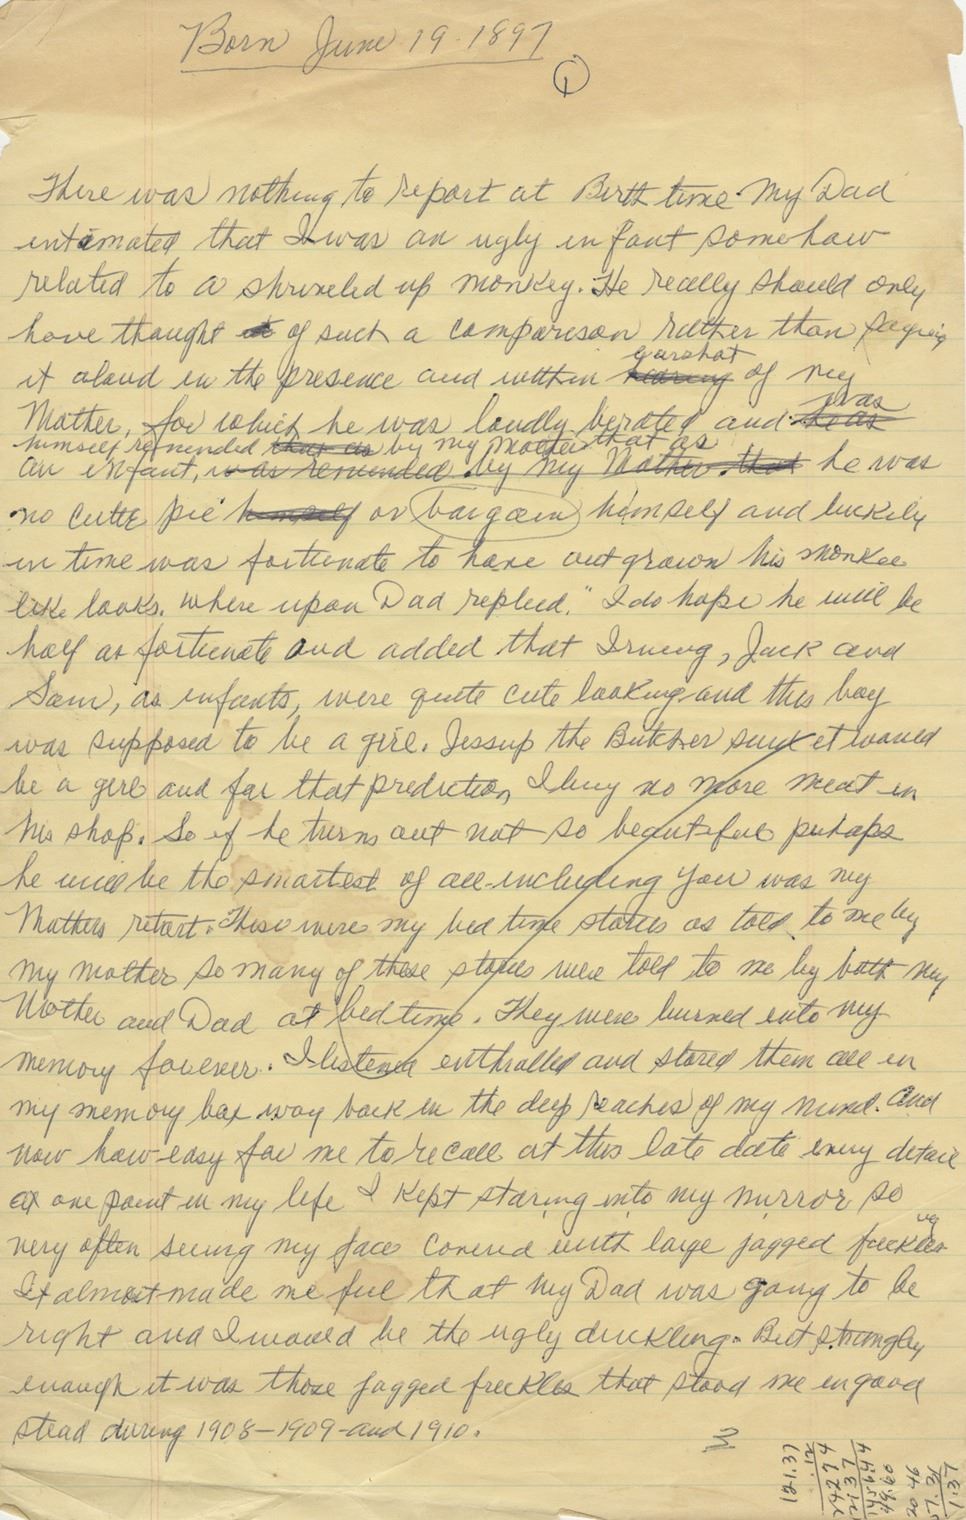 Born June 19-1897
1
There was nothing to report at Birth time. My Dad
intimated that I was an ugly infant somehow
related to a shriveled up monkey. He really should only
have thought of such a comparison rather than saying
it aloud in the presence and within hearing earshot of my
Mother, for which he was loudly berated and he as was
himself reminded that as by my mother that as
an infant, was reminded by my Mother that he was
no cutie pie himself or bargain himself and luckily
in time was fortunate to have outgrown his monkee
like looks. Where upon Dad replied, "I do hope he will be
half as fortunate and added that Irving, Jack and
Sam, as infants, were quite cute looking and this boy
was supposed to be a girl. Jessup the Butcher said it would
be a girl and for that prediction, I buy no more meat in
his shop. So if he turns out not so beautiful perhaps
he will be the smartest of all-including you was my
Mothers retort. These were my bed time stories as told to me by
my mother so many of these stories were told to me by both my
Mother and Dad at bed time. They were burned into my
memory forever. I listened enthralled and stored them all in
my memory box way back in the deep reaches of my mind. And
now how easy for me to recall at this late date every detail
at one point in my life I kept staring into my mirror so
very often seeing my face covered with large jagged freckles
It almost made me feel that my Dad was going to be
right and I would be the ugly duckling. But strangly
enough it was those jagged freckles that stood me in good
stead during 1908-1909-and 1910.
121.37